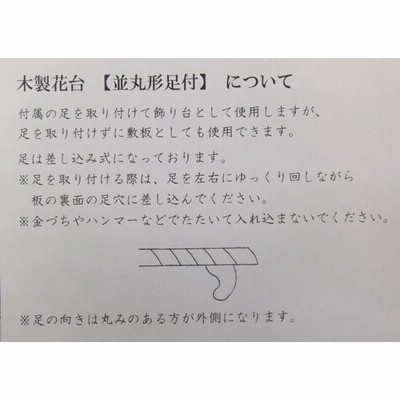 木製花台 【並丸形足付】 について
付属の足を取り付けて飾り台として使用しますが、
足を取り付けずに敷板としても使用できます。
足は差し込み式になっております。
※足を取り付ける際は、足を左右にゆっくり回しながら
板の裏面の足穴に差し込んでください。
※金づちやハンマーなどでたたいて入れ込まないでください。
※足の向きは丸みのある方が外側になります。